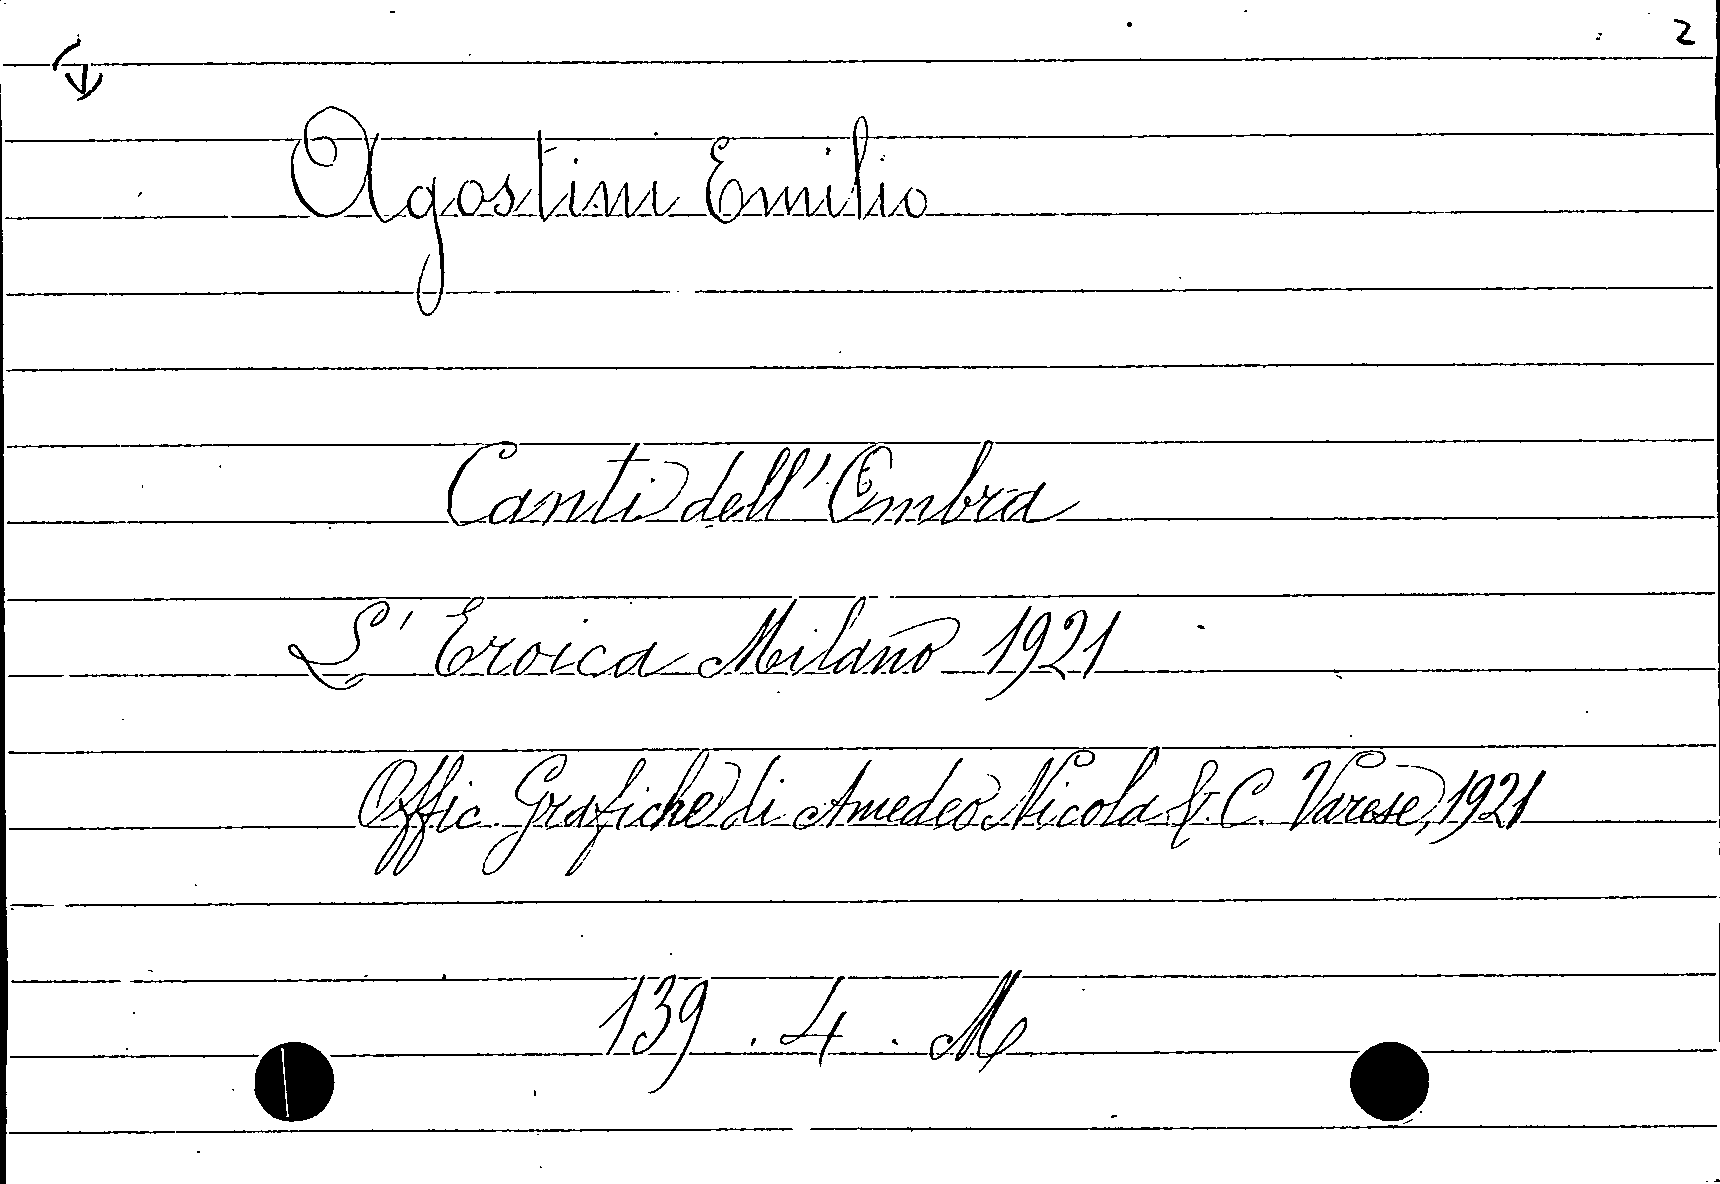 2
Agostini Emilio
Canti dell'Ombra
L'Eroica Milano 1921
Offic. Grafiche di Amedeo Nicola &. C. Varese, 1921
139 . 4 . M